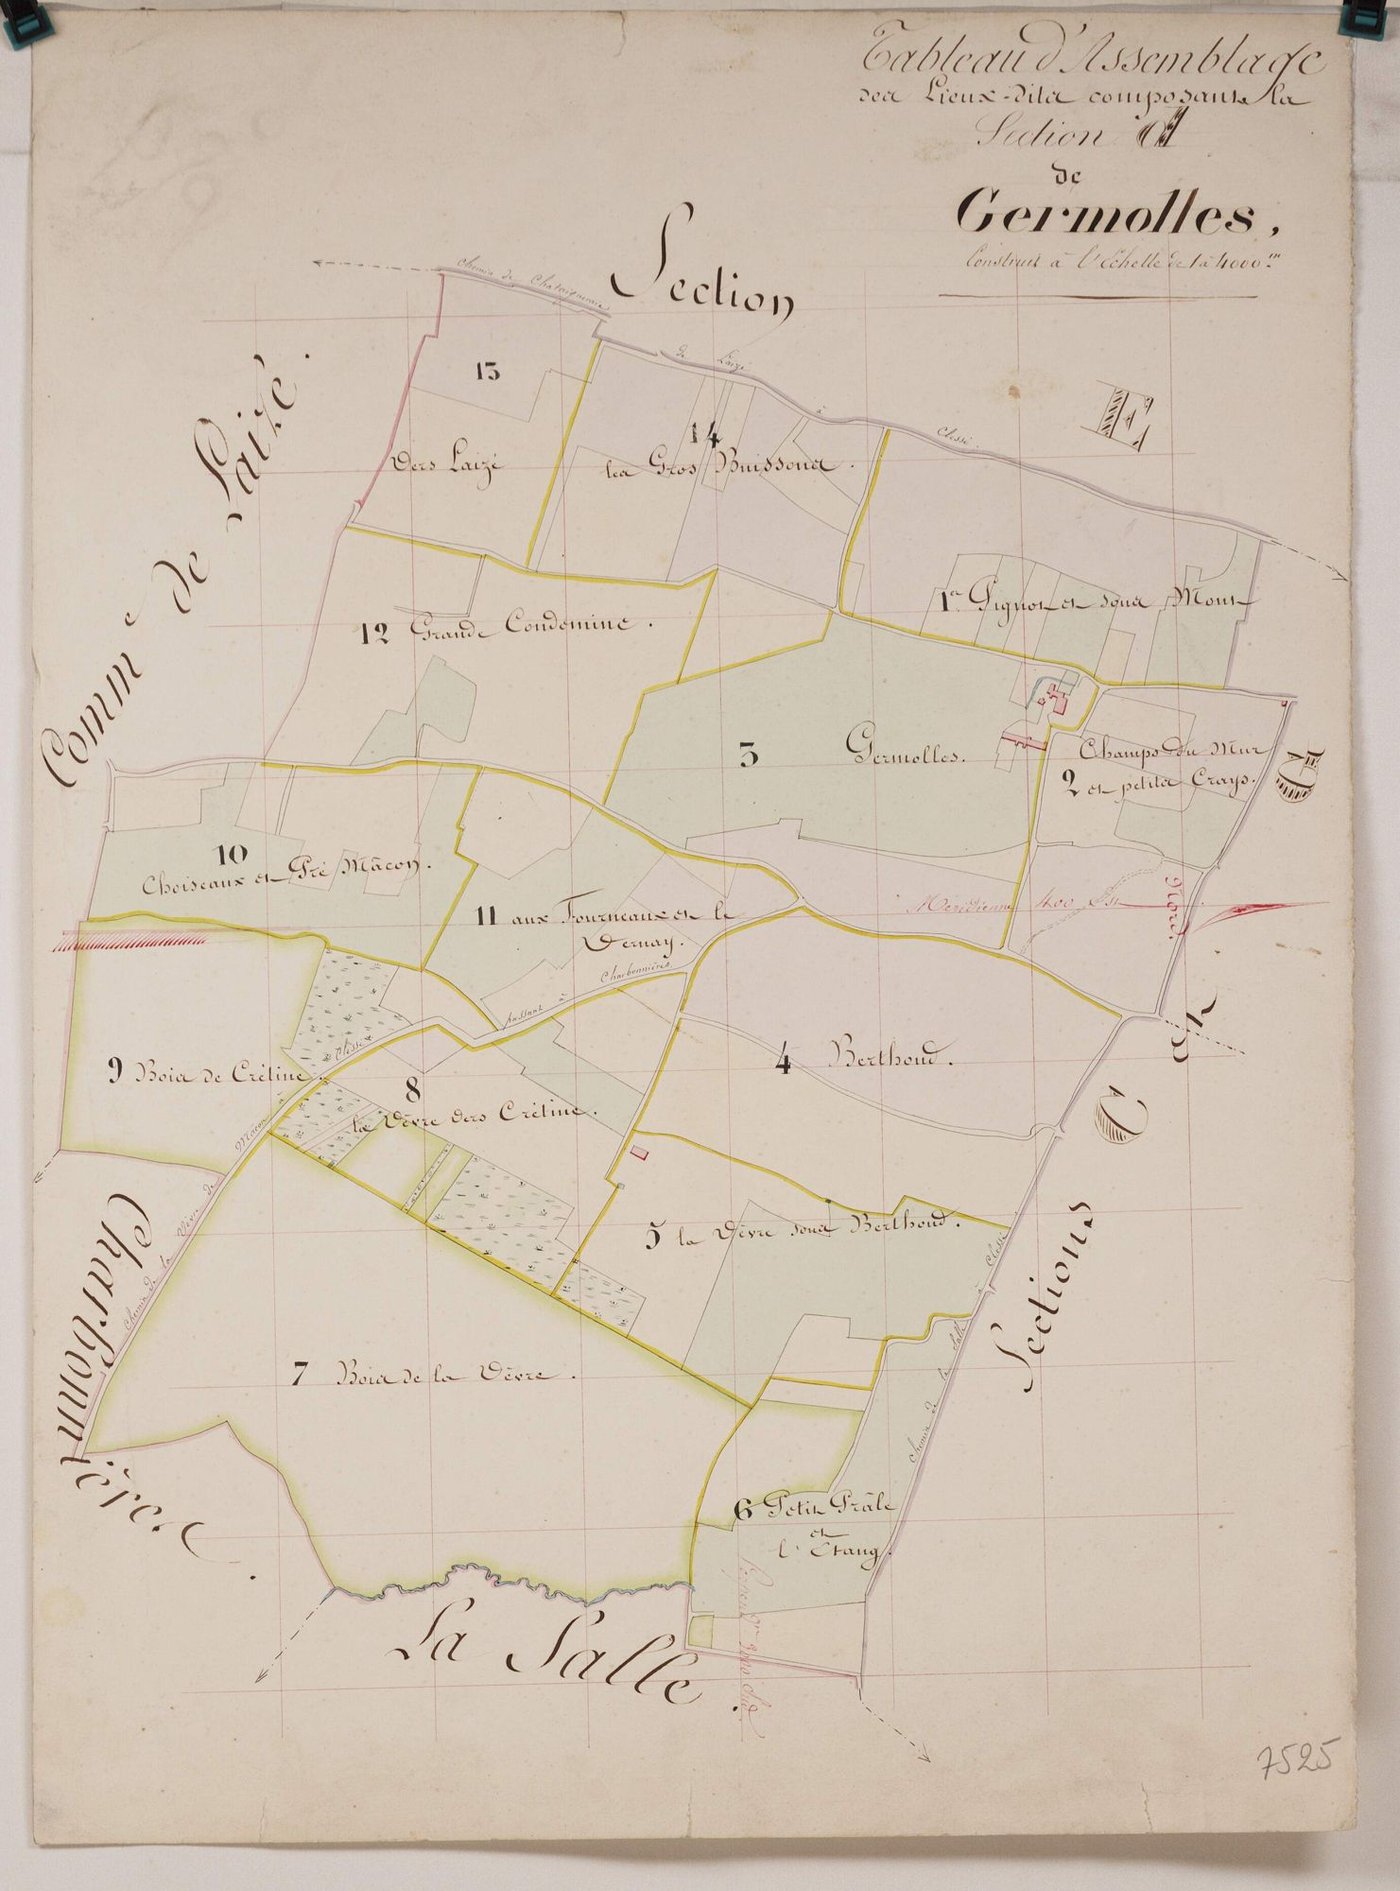 Tableau d'Assemblage
des Lieux-dits composant la
Section A
de
Germolles,
Construit à l'échelle de 1 à 4000.m
Section
E
Comm.e de Laizé.
chemin de
de Laizé à Clessé
13
Vers Laizé
14
les Gros Buissons.
1.er Pignot et sous Mont
12 Grande Condemine.
3 Germolles.
Champs du Mur
2 et petits Crays.
B
10
Choiseaux et Pré Mâcon.
11 aux Fourneaux et le
Vernay.
Méridienne
Nord.
passant à Charbonnières
Clessé
9 Bois de Crétine.
8
la Vèvre vers Crétine.
4 Berthoud.
5 la Vèvre sous Berthoud.
Chemin de la Vèvre de Macon
7 Bois de la Vèvre.
chemin de la Salle à Clessé
Sections C et
6 Petit Prâle
et
l'Etang.
Charbonnière.
La Salle.
7525